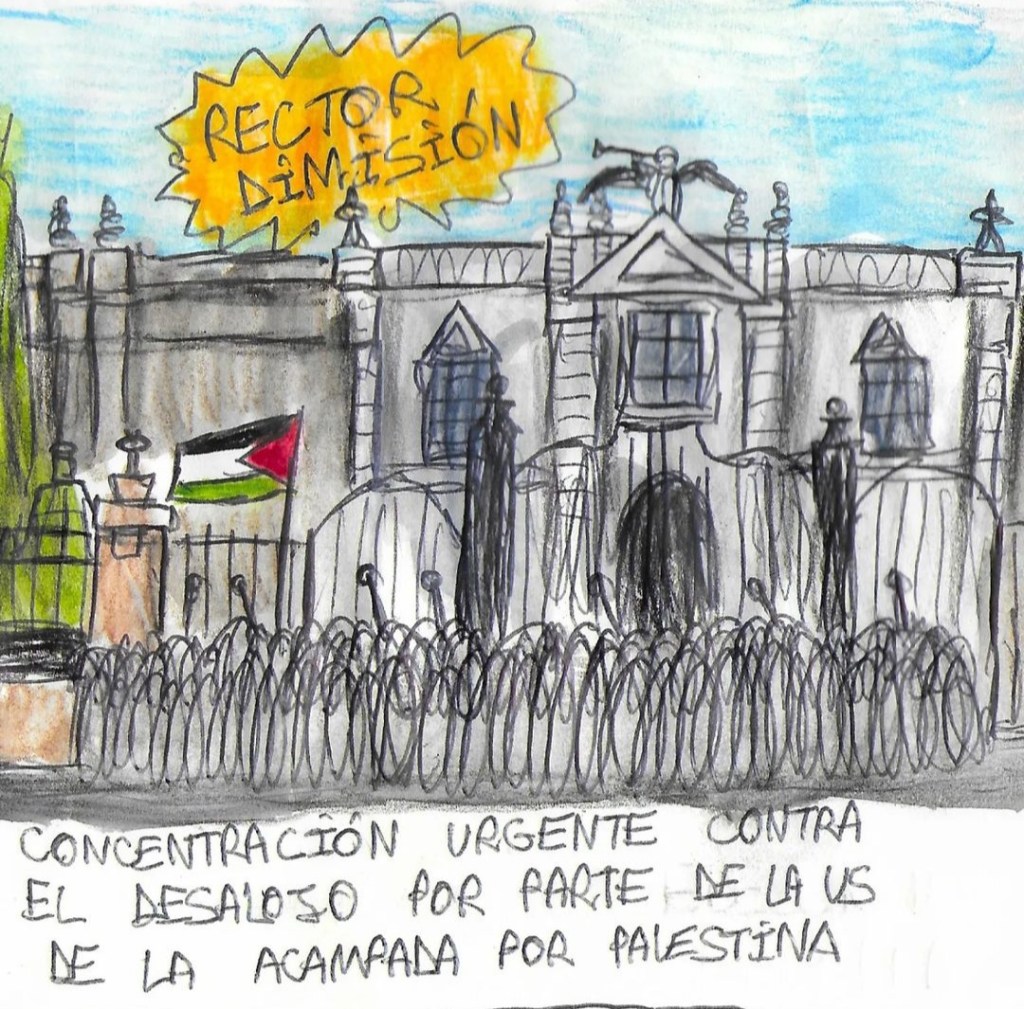 RECTOR
DIMISIÓN
CONCENTRACIÓN URGENTE CONTRA
EL DESALOJO POR PARTE DE LA US
DE LA ACAMPADA POR PALESTINA